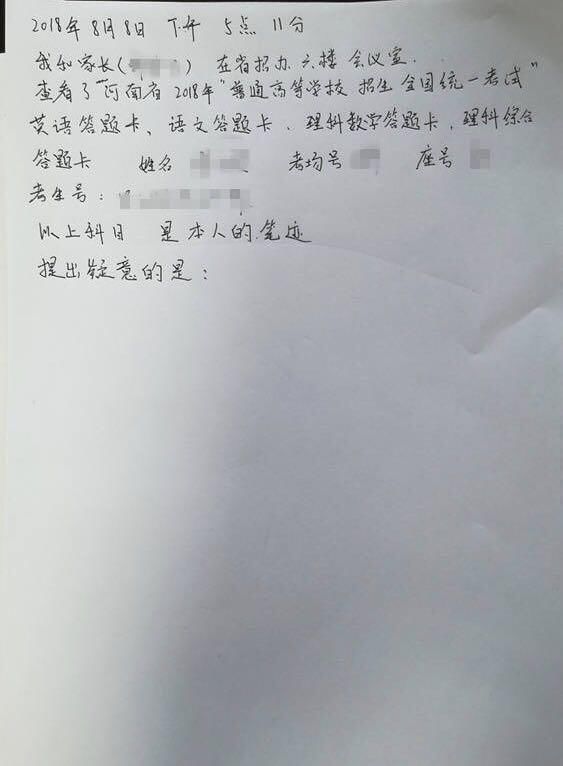 2018年8月8日 下午 5点 11分
我和家长( ) 在省招办 六楼 会议室.
查看了"河南省 2018年"普通高等学校 招生 全国统一考试"
英语答题卡、语文答题卡、理科数学答题卡、理科综合
答题卡 姓名 考场号 座号
考生号:
以上科目 是本人的笔迹
提出疑意的是: